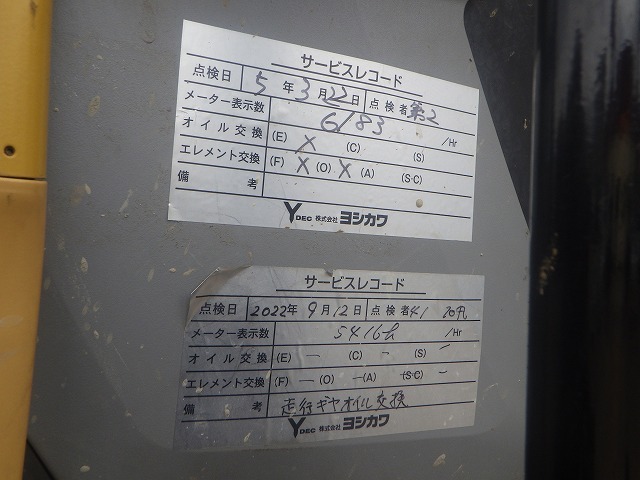 サービスレコード
点検日 5年3月22日 点検者 第2
メーター表示数 6183 /Hr
オイル交換 (E) X (C) (S)
エレメント交換 (F) X (O) X (A) (S·C)
備考
YDEC 株式会社 ヨシカワ
サービスレコード
点検日 2022年9月12日 点検者
メーター表示数 5416h /Hr
オイル交換 (E) ー (C) ー (S) ー
エレメント交換 (F) ー (O) ー (A) ー (S·C) ー
備考 走行ギヤオイル交換
YDEC 株式会社 ヨシカワ